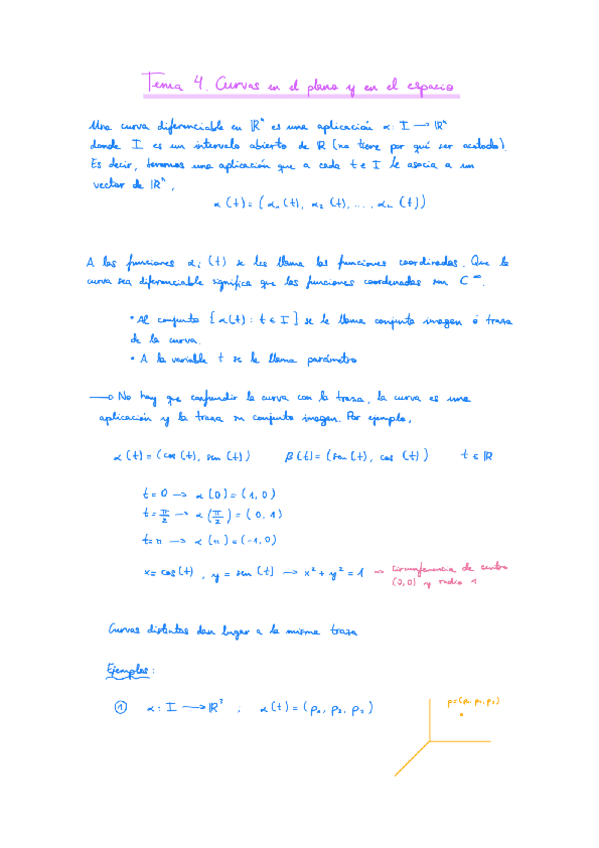 Tema 4. Curvas en el plano y en el espacio
Una curva diferenciable en ℝⁿ es una aplicación α: I → ℝⁿ
donde I es un intervalo abierto de ℝ (no tiene por qué ser acotado).
Es decir, tenemos una aplicación que a cada t ∈ I le asocia a un
vector de ℝⁿ,
α(t) = (α₁(t), α₂(t), ..., αₙ(t))
A las funciones αᵢ(t) se les llama las funciones coordenadas. Que la
curva sea diferenciable significa que las funciones coordenadas son C^∞.
• Al conjunto {α(t) : t ∈ I} se le llama conjunto imagen ó traza
de la curva.
• A la variable t se le llama parámetro
→ No hay que confundir la curva con la traza, la curva es una
aplicación y la traza su conjunto imagen. Por ejemplo,
α(t) = (cos(t), sen(t)) β(t) = (sen(t), cos(t)) t ∈ ℝ
t = 0 → α(0) = (1, 0)
t = π/2 → α(π/2) = (0, 1)
t = π → α(π) = (-1, 0)
x = cos(t), y = sen(t) → x² + y² = 1 → Circunferencia de centro
(0,0) y radio 1
Curvas distintas dan lugar a la misma traza
Ejemplos:
① α: I → ℝ³ ; α(t) = (p₁, p₂, p₃)
p=(p₁, p₂, p₃)